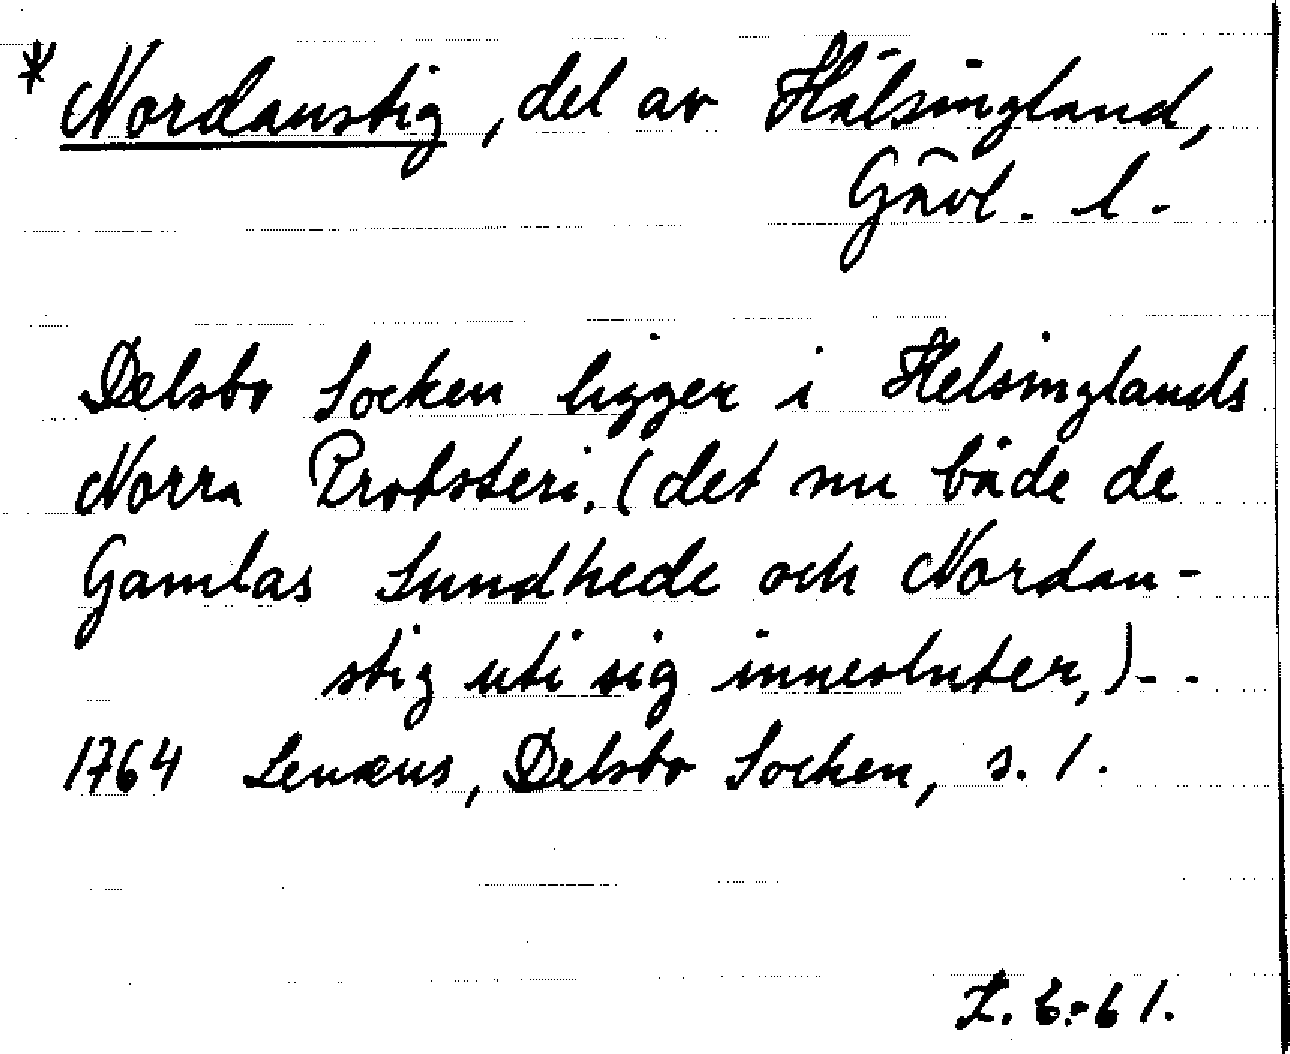 * Nordanstig, del av Hälsingland,
Gävl. l.
Delsbo Socken ligger i Helsinglands
Norra Probsteri. (det nu både de
Gamlas Sundhede och Nordan-
stig uti sig innesluter,) - -
1764 Lenæus, Delsbo Socken, s. 1.
L. B-61.